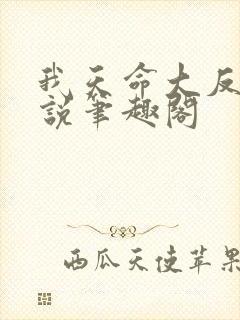 我天命大反
說筆趣閣
西瓜天使苹果